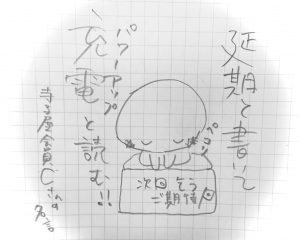 延期と書いて
パワーアップ
充電と読む!!
ペコリ
次回こそう
ご期待!
寺子屋会員Cさんの